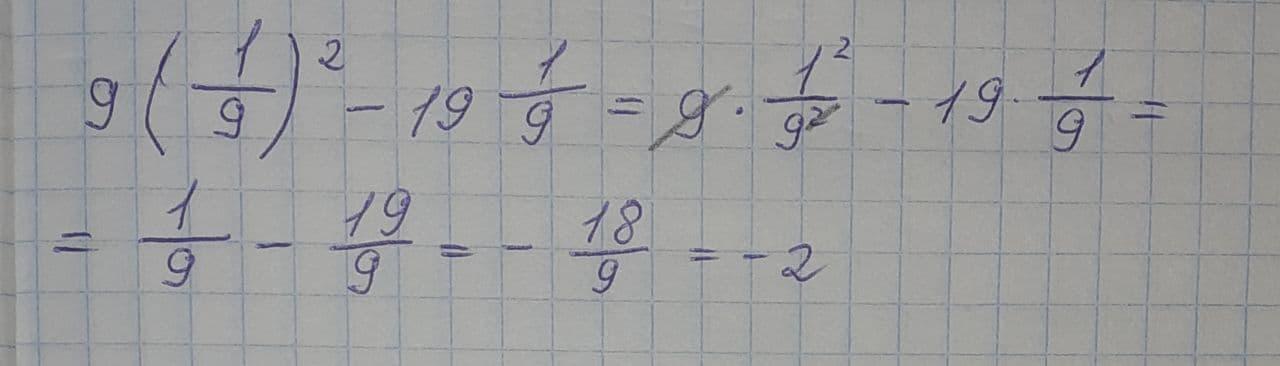 9(1/9)² - 19 1/9 = 9 · 1²/9² - 19 · 1/9 =
= 1/9 - 19/9 = - 18/9 = - 2